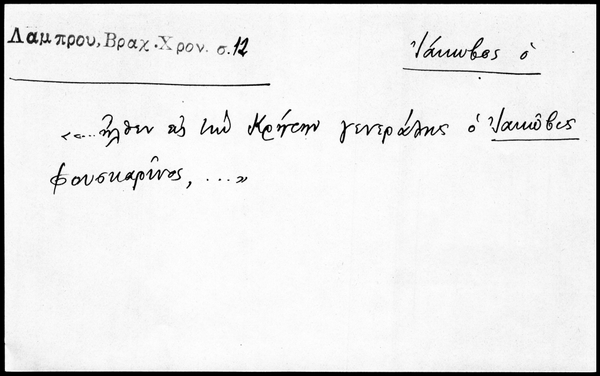 Λαμπρου, Βραχ. Χρον. σ. 12
Ἰάκωβος ὁ
«... ἦλθεν εἰς τὴν Κρήτην γενεράλης ὁ Ἰακῶβος
Φουσκαρῖνος, ...»